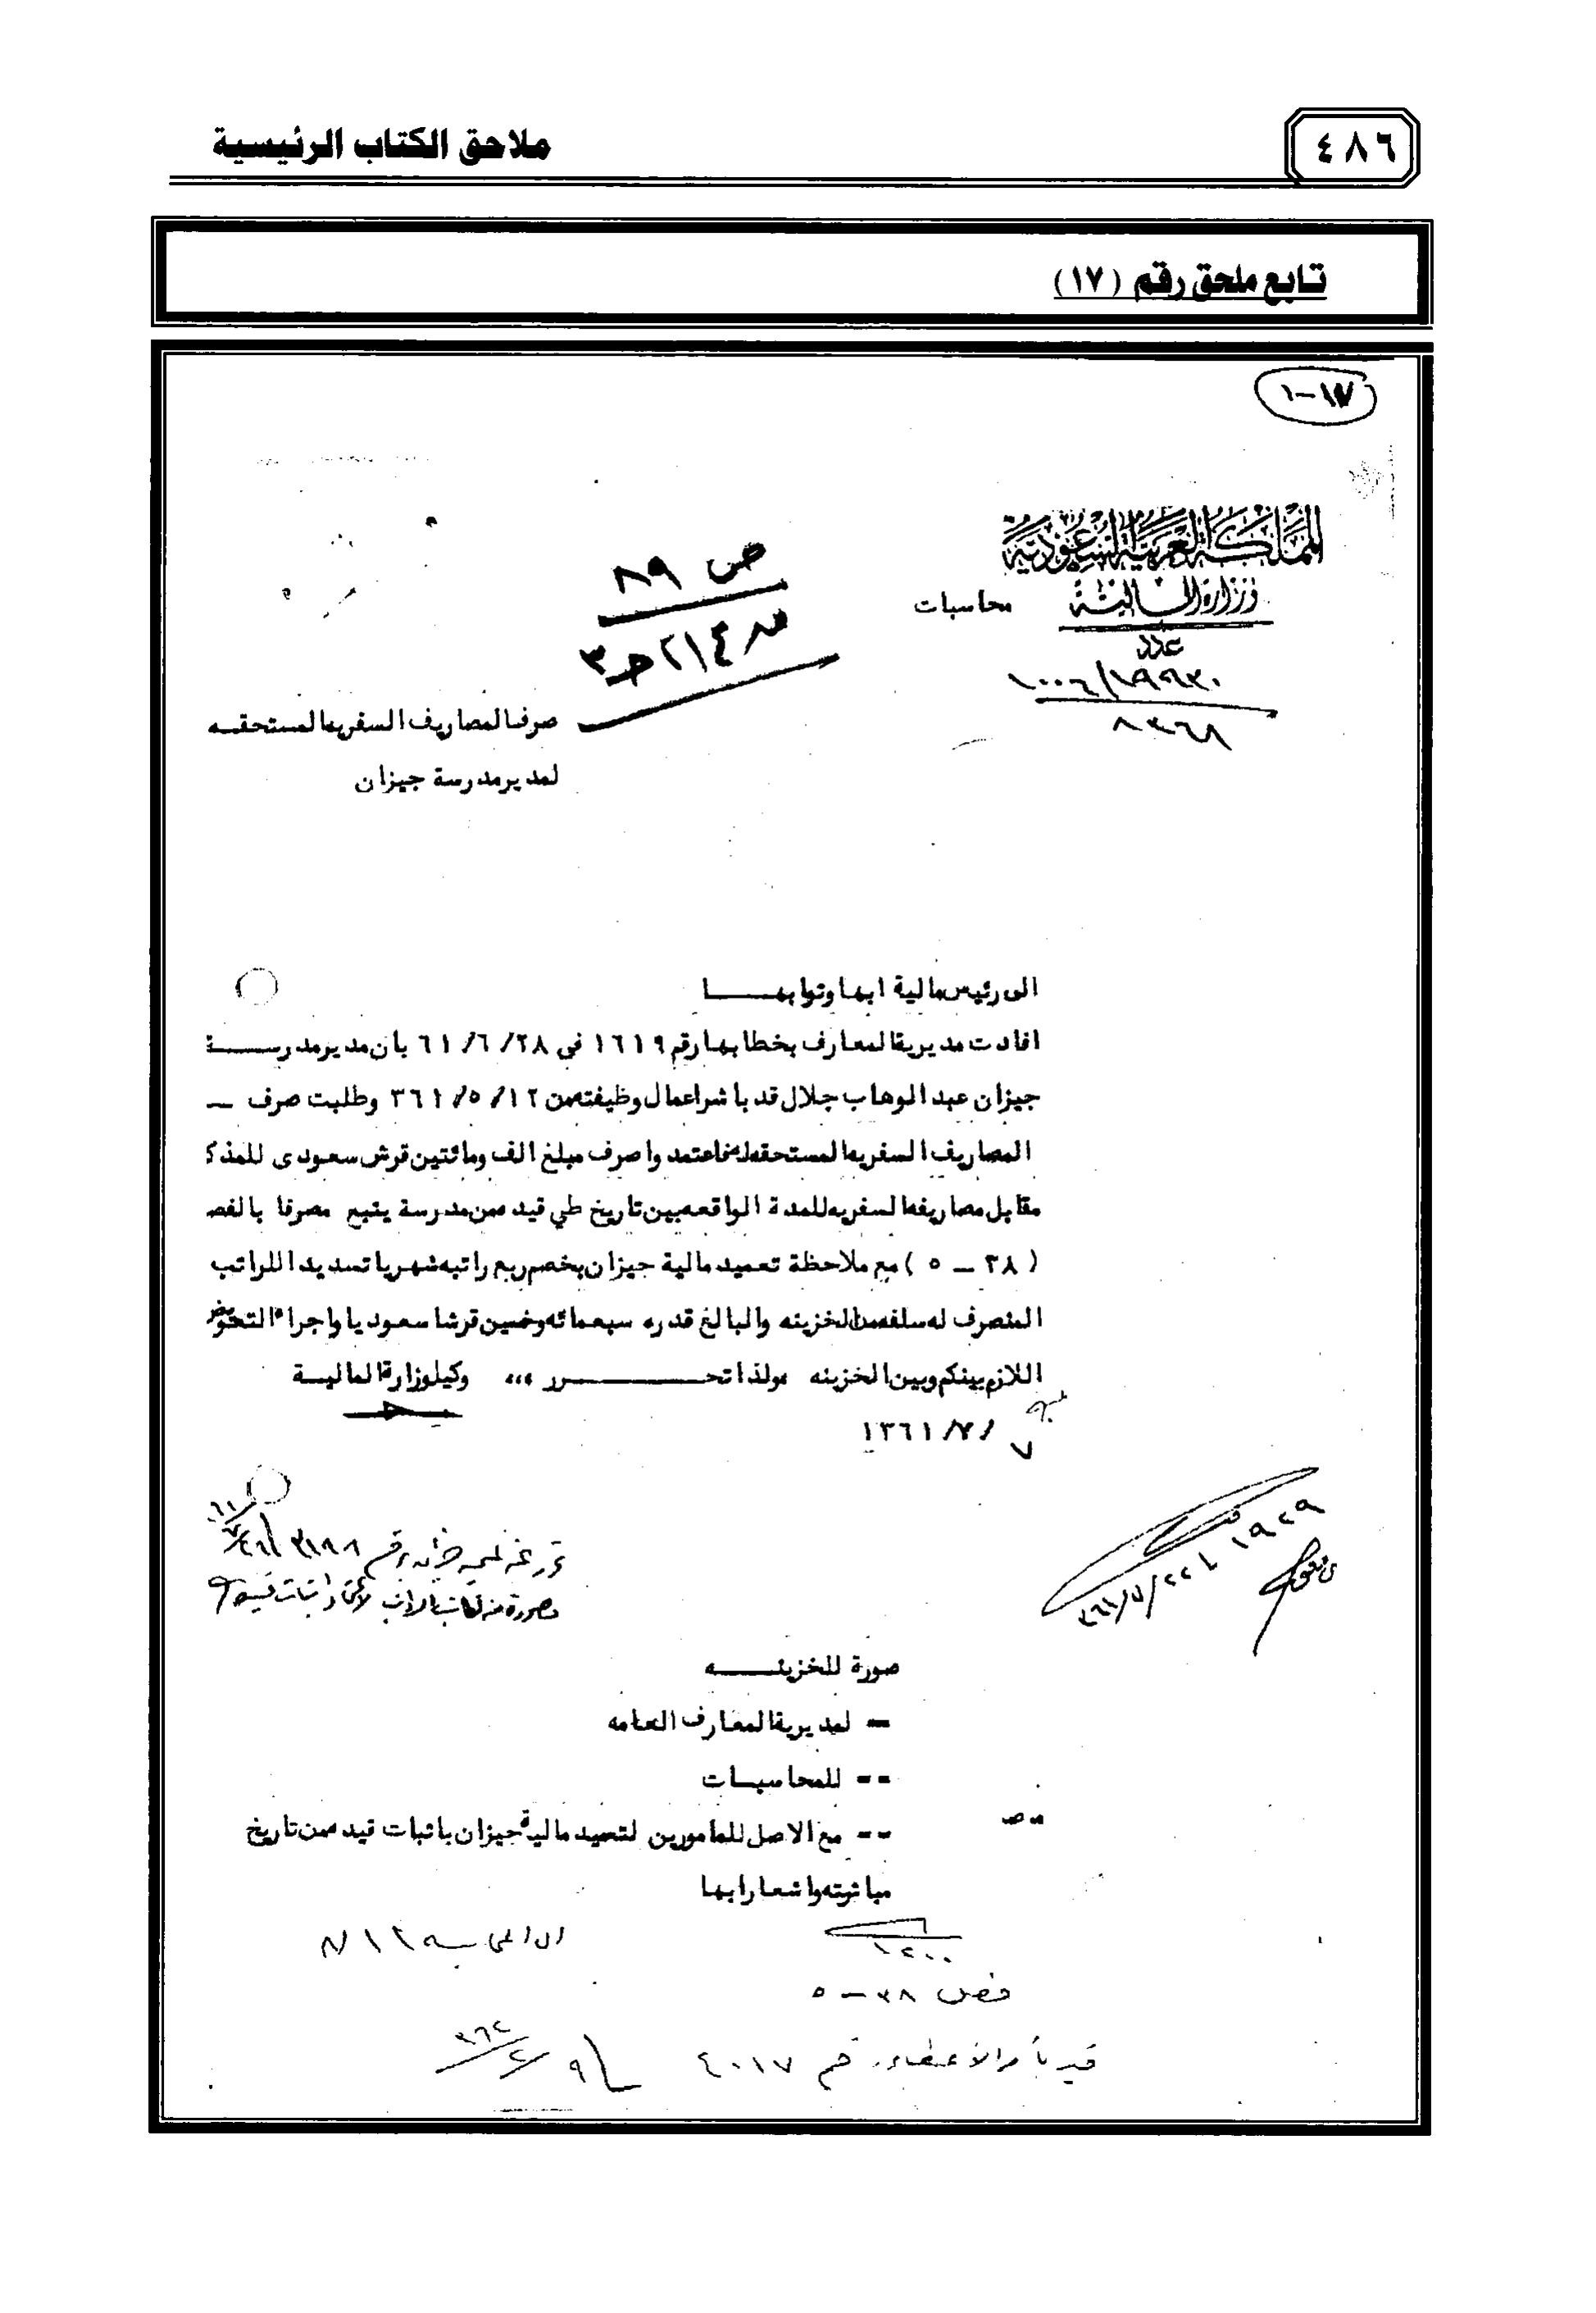 ٤٨٦
ملاحق الكتاب الرئيسية
تابع ملحق رقم (١٧)
١٧-١
المملكة العربية السعودية
وزارة المالية
محاسبات
عدد
١٠٠٦/١٩٩٣٠
٨٣٦٨
ص ٨٩
صرف المصاريف السفريه المستحقه
لمدير مدرسة جيزان
الى رئيس مالية ابها وتوابهـــا
افادت مديرية المعارف بخطابها رقم ١٦١٩ في ٦١/٦/٢٨ بان مدير مدرســـة
جيزان عبد الوهاب جلال قد باشر اعمال وظيفته من ٣٦١/٥/١٢ وطلبت صرف ــ
المصاريف السفريه المستحقه له فاعتمدوا صرف مبلغ الف ومائتين قرش سعودى للمذك
مقابل مصاريفه السفريه للمدة الواقعه بين تاريخ طي قيده من مدرسة ينبع مصرفا بالفصـ
( ٣٨ ــ ٥ ) مع ملاحظة تعميد مالية جيزان بخصم ربع راتبه شهريا تسديدا للراتب
المنصرف له سلفه من الخزينه والبالغ قدره سبعمائه وخمسين قرشا سعوديا واجراء التحويض
اللازم بينكم وبين الخزينه ولذا تحـــــرر ،،، وكيل وزارة المالية
٧ /٧/ ١٣٦١
١٩٢٩
٣٦١/٧/٢٢
صورة للخزينـــه
ــ لمديرية المعارف العامه
-- للمحاسبات
-- مع الاصل للمأمورين لتعميد مالية جيزان باثبات قيده من تاريخ
مباشرته واشعارابها
١٢٠٠
فصل ٣٨ ــ ٥
قيد بأمر الاعطاء رقم ٤٠١٧